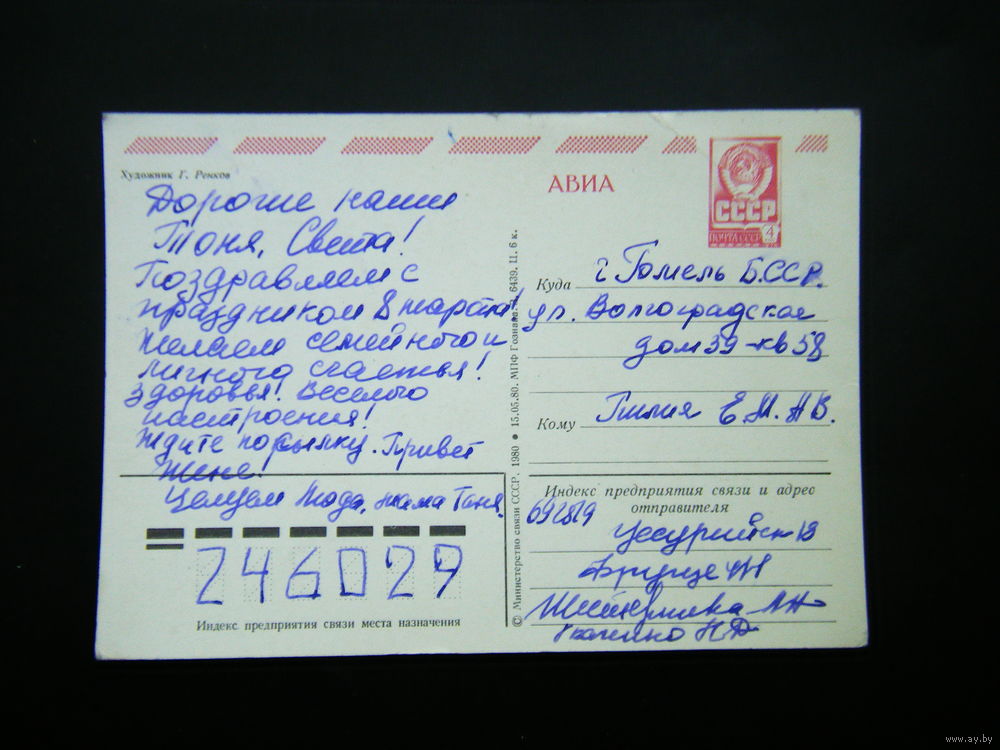 Художник Г. Ренков
Дорогие наши
Тоня, Света!
Поздравляем с
праздником 8 марта!
Желаем семейного и
личного счастья!
Здоровья! Веселого
настроения!
Ждите посылку. Привет
Жене!
Целуем Люда, мама Таня.
246029
Индекс предприятия связи места назначения
© Министерство связи СССР. 1980 • 15.05.80. МПФ Гознака. З. 6439. Ц. 6 к.
АВИА
СССР
ПОЧТА СССР
4
Куда г Гомель БССР.
ул. Волгоградская
дом 39-кв 58
Кому Е.М. А В.
Индекс предприятия связи и адрес
отправителя
692519
Уссурийск 13
Фрунзе
www.ay.by